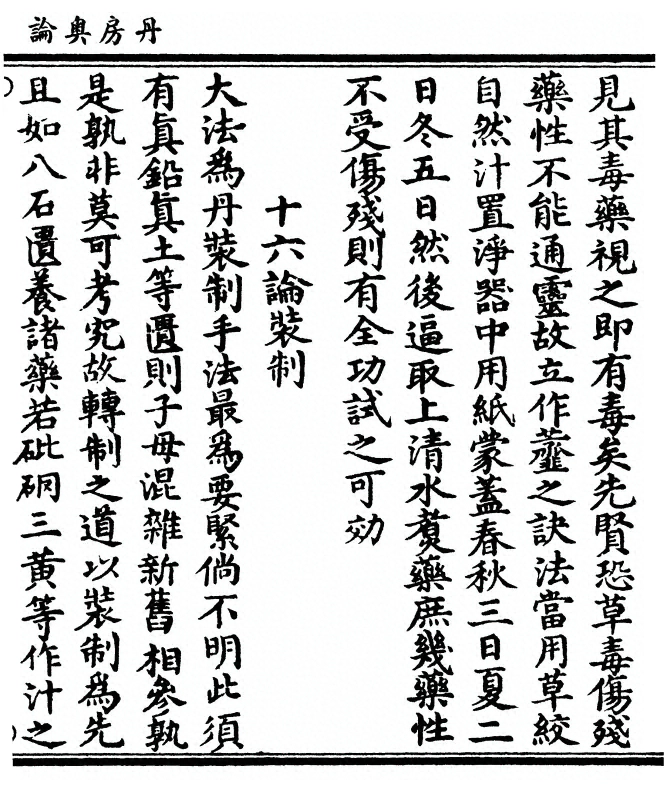 丹房奥論
見其毒藥視之即有毒矣先賢恐草毒傷殘
藥性不能通靈故立作虀之訣法當用草絞
自然汁置淨器中用紙蒙蓋春秋三日夏二
日冬五日然後逼取上清水煑藥庶幾藥性
不受傷殘則有全功試之可効
十六論裝制
大法爲丹裝制手法最爲要緊倘不明此須
有眞鉛眞土等匱則子母混雜新舊相參孰
是孰非莫可考究故轉制之道以裝制爲先
且如八石匱養諸藥若砒硇三黄等作汁之